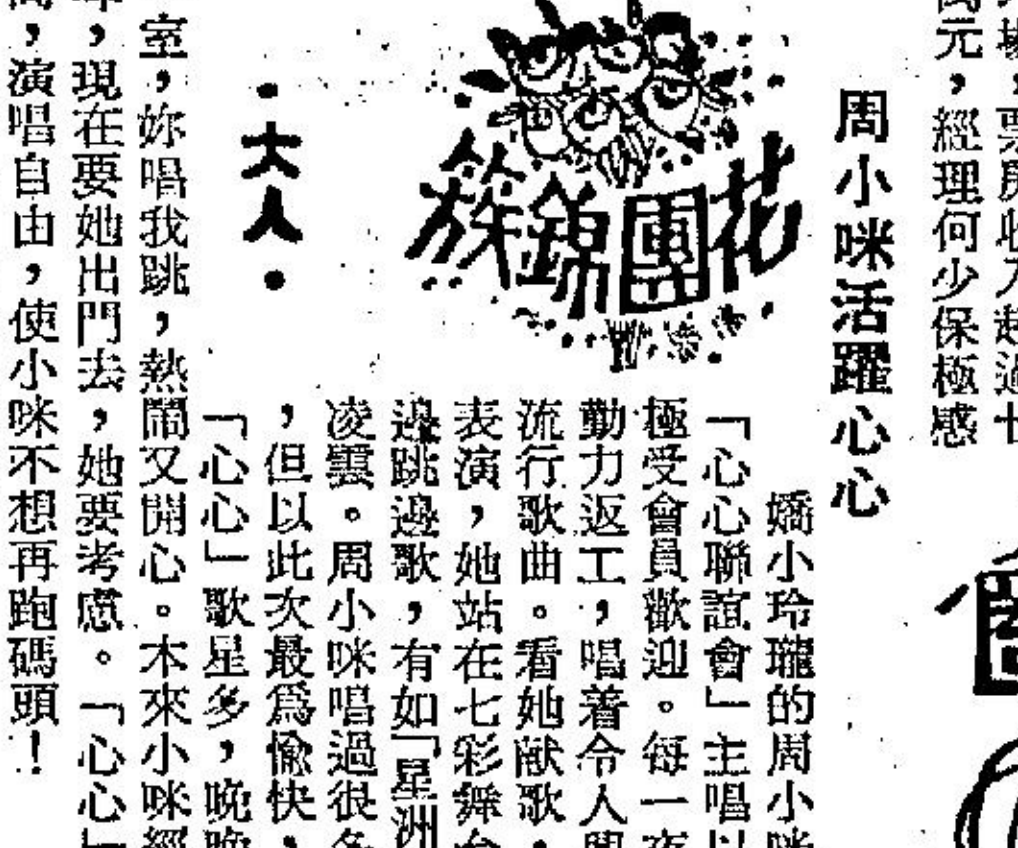 場，票房收入超過廿
元，經理何少保極感
周小咪活躍心心
花團錦簇
·大人·
嬌小玲瓏的周小咪
「心心聯誼會」主唱以
極受會員歡迎。每一夜
勤力返工，唱着令人
流行歌曲。看她献歌，
表演，她站在七彩舞台
邊跳邊歌，有如「星洲
凌雲。周小咪唱過很多
，但以此次最爲愉快，
「心心」歌星多，晚晚
室，妳唱我跳，熱鬧又開心。本來小咪經
，現在要她出門去，她要考慮。「心心」
，演唱自由，使小咪不想再跑碼頭！